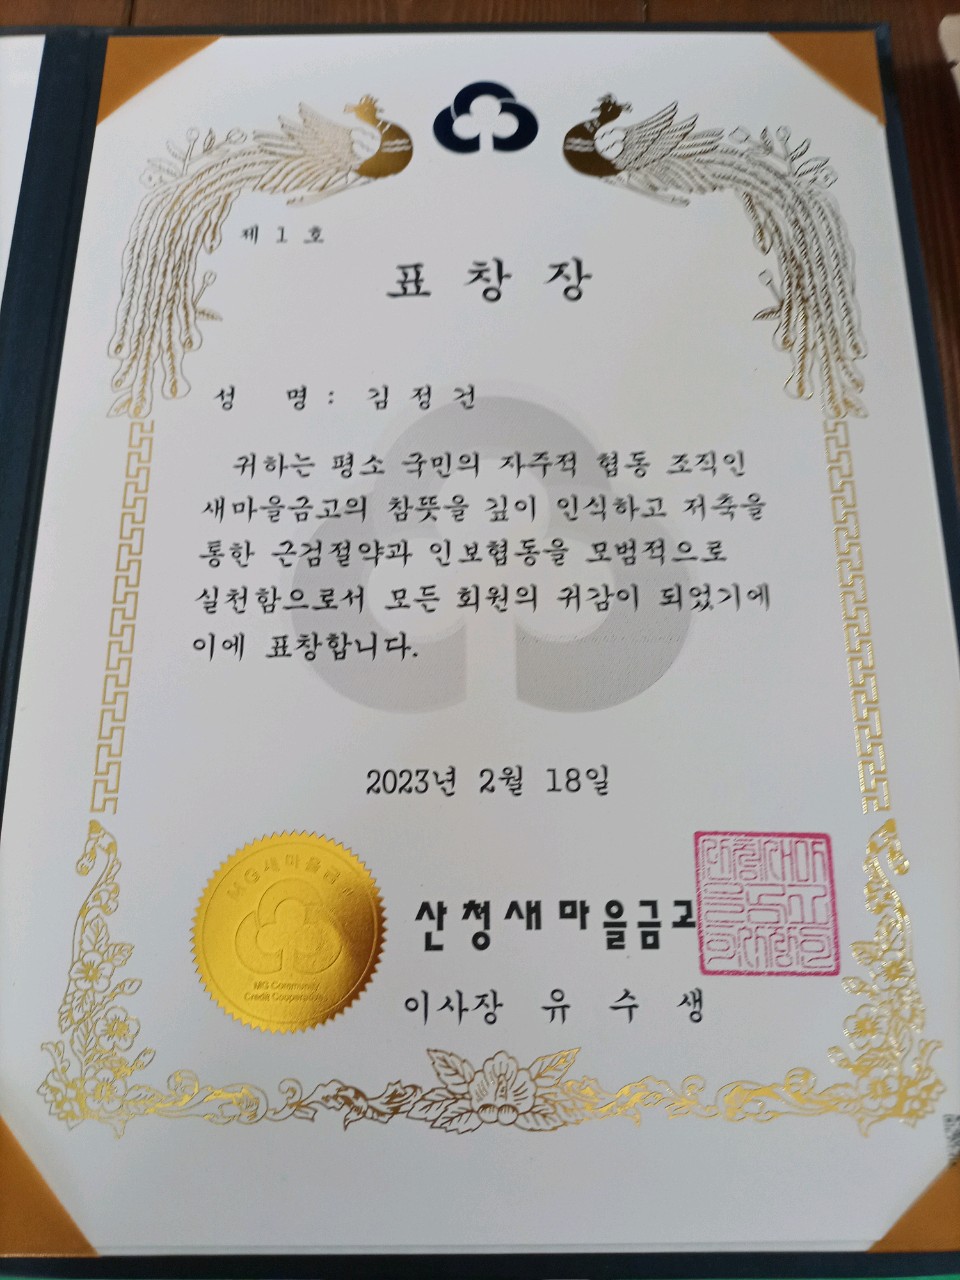 제 1 호
표 창 장
성 명 : 김 정 건
귀하는 평소 국민의 자주적 협동 조직인
새마을금고의 참뜻을 깊이 인식하고 저축을
통한 근검절약과 인보협동을 모범적으로
실천함으로서 모든 회원의 귀감이 되었기에
이에 표창합니다.
2023년 2월 18일
MG새마을금고
MG Community
Credit Cooperatives
산청새마을금고
이사장 유 수 생